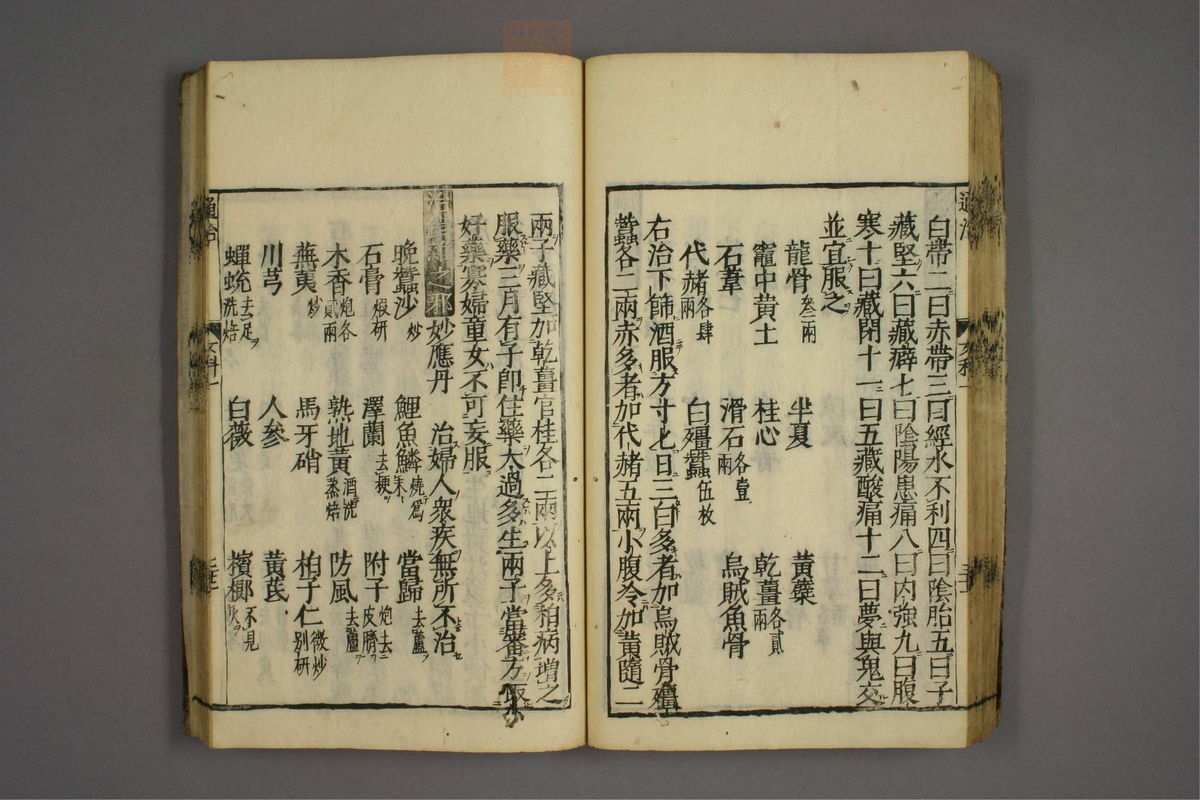 白帶二曰赤帶三曰經水不利四曰陰胎五曰子
藏堅六曰藏癖七曰陰陽患痛八曰内強九曰腹
寒十曰藏閉十一曰五藏酸痛十二曰夢與鬼交
並宜服之
龍骨叁兩 半夏 黃蘗
竈中黃土 桂心 乾薑各貳兩
石葦 滑石各壹兩 烏賊魚骨
代赭各肆兩 白殭蠶伍枚
右治下篩酒服方寸匕日三白多者加烏賊骨殭
蠶各二兩赤多者加代赭五兩小腹冷加黃隨二
兩子藏堅加乾薑官桂各二兩以上多稍病增之
服藥三月有子即住藥太過多生兩子當審方取
好藥寡婦童女不可妄服
妙應丹 治婦人衆疾無所不治
晚蠶沙炒 鯉魚鱗燒爲末 當歸去蘆
石膏煅研 澤蘭去梗 附子炮去皮臍
木香炮各貳兩 熟地黃酒洗蒸焙 防風去蘆
蕪荑炒 馬牙硝 柏子仁微炒別研
川芎 人參 黃芪
蟬蛻去足洗焙 白薇 檳榔不見火
通治